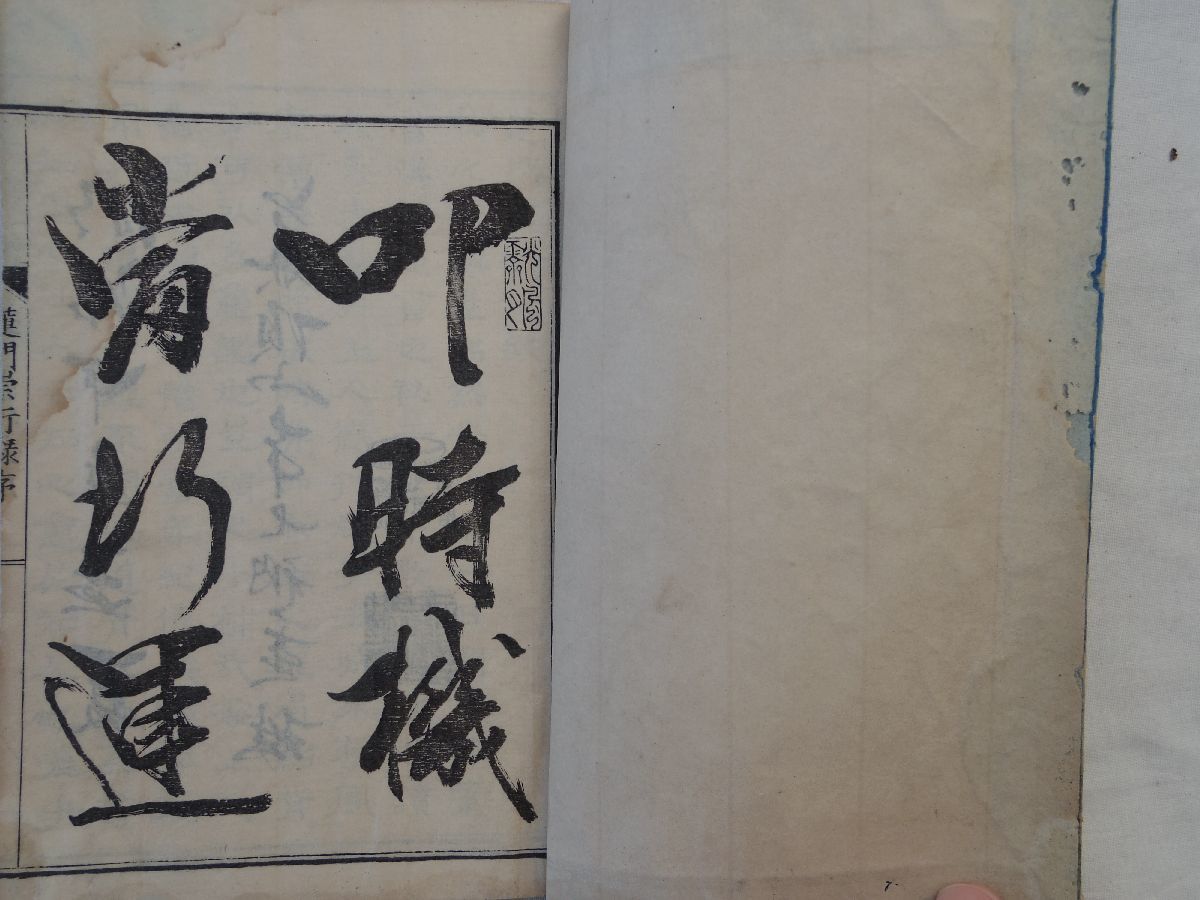 叩時機
當行運
蓮門崇行録序